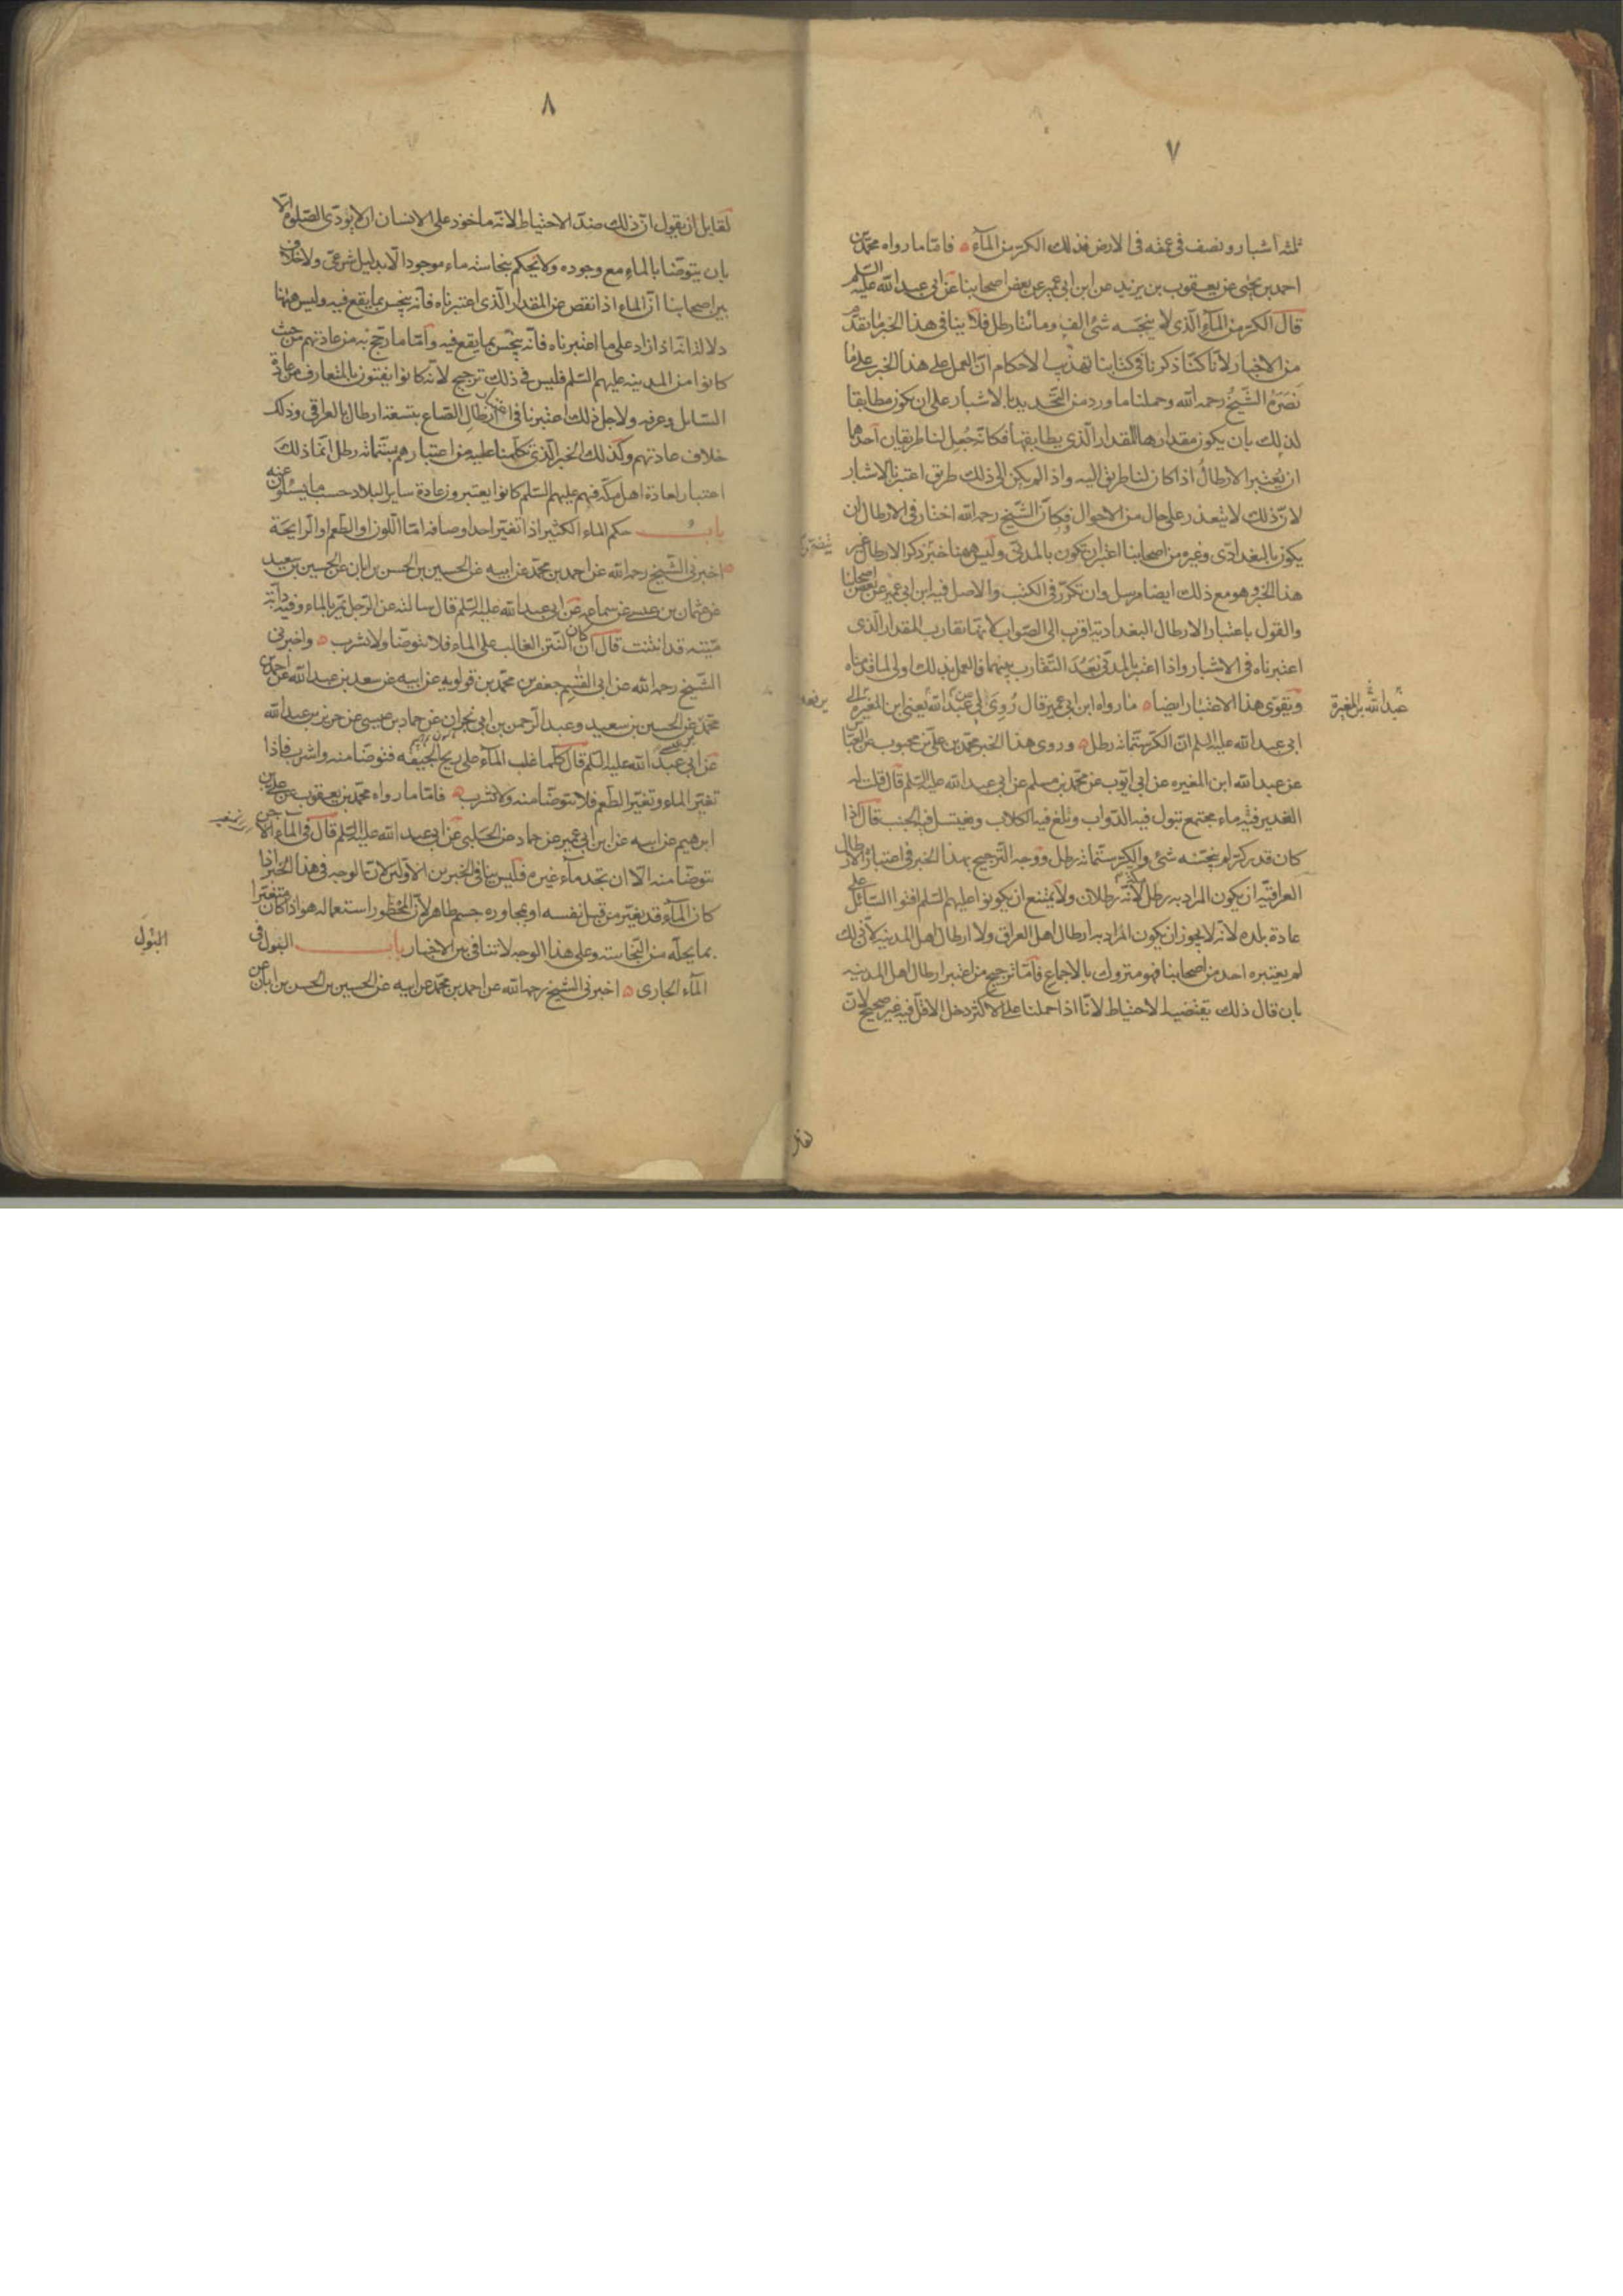 ٧
ثلثه اشبار ونصف فى عمقه فى الارض فذلك الكر من المآء فامّا مارواه محمّد بن
احمد بن يحيى عن يعقوب بن يزيد عن ابن ابى عمير عن بعض اصحابنا عن ابى عبد الله عليه السّلم
قال الكر من المآء الّذى لا ينجّسه شئ الف ومائتا رطل فلا ينافى هذا الخبر ما تقدّم
من الاخبار لأنا كنّا ذكرنا فى كتابنا تهذيب الأحكام انّ العمل على هذا الخبر على ما
نَصَرَهُ الشّيخ رحمه الله وحملنا ما ورد من التّحديد بالاشبار على ان يكون مطابقا
لذلك بان يكون مقدارها المقدار الّذى يطابقها فكانّه جُعِل لنا طريقان احدهما
ان يُعتبر الارطالُ اذا كان لنا طريق اليه واذا لم يكن الى ذلك طريق اعتبرنا الاشبار
لانّ ذلك لا يتعذر على حال من الاحوال فكانّ الشّيخ رحمه الله اختار فى الارطال ان
يكون بالبغدادى وغيره من اصحابنا اعتبر ان تكون بالمدنى وليس ههنا خبر ذكر الارطال غير
هذا الخبر وهو مع ذلك ايضا مرسل وان تكرّر فى الكتب والاصل فيه ابن ابى عمير عن بعض اصحابنا
والقول باعتبار الارطال البغداديّة اقرب الى الصّواب لانّها تقارب المقدار الّذى
اعتبرناه فى الاشبار واذا اعتبر بالمدنى بَعُدَ التّقارب بينهما فالعمل بذلك اولى لما قدمناه
ويقوّى هذا الاعتبار ايضا ما رواه ابن ابى عمير قال رُوِىَ لى عن عبد الله يعنى ابن المغيره الى
عبد الله بن المغيرة
يرفعه
ابى عبد الله عليه السلم انّ الكر ستّمائه رطل وروى هذا الخبر محمّد بن علىّ بن محبوب عن العبّاس
عن عبد الله ابن المغيره عن ابى ايّوب عن محمّد بن مسلم عن ابى عبد الله عليه السّلم قال قلت له
الغدير فيه ماء مجتمع تبول فيه الدّواب وتلغ فيه الكلاب ويغتسل فيه الجنب قال اذا
كان قدر كر لم ينجّسه شئ والكر ستّمائه رطل ووجه التّرجيح بهذا الخبر فى اعتبار الارطال
العراقيّه ان يكون المراد به رطل مكّه لانّه رطلان ولا يمتنع ان يكونوا عليهم السّلم افتوا السّائل على
عادة بلده لانه لا يجوز ان يكون المراد به ارطال اهل العراق ولا ارطال اهل المدينه لانّ ذلك
لم يعتبره احد من اصحابنا فهو متروك بالاجماع فامّا ترجيح من اعتبر ارطال اهل المدينه
بان قال ذلك يقتضيه الاحتياط لانّا اذا حملنا على الاكثر دخل الاقلّ فيه غير صحيح لانّ
٨
لقايل ان يقول انّ ذلك ضدّ الاحتياط لانّه ماخوذ على الانسان ان لا يؤدّى الصّلوة الّا
بان يتوضّا بالماء مع وجوده ولا يحكم بنجاسته ماء موجودا الّا بدليل شرعى ولا خلاف
بين اصحابنا انّ الماء اذا نقص عن المقدار الّذى اعتبرناه فانّه ينجس بما يقع فيه وليس ههنا
دلاله انّه اذا زاد على ما اعتبرناه فانّه ينجّس بما يقع فيه وامّا ما رجّح به من عادتهم من حيث
كانوا من المدينه عليهم السّلم فليس فى ذلك ترجيح لانّه كانوا يفتون بالمتعارف من عادة
السّايل وعرفه ولاجل ذلك اعتبرنا فى ارطال الصّاع بتسعة ارطال بالعراقى وذلك
خلاف عادتهم وكذلك الخبر الّذى تكلّمنا عليه من اعتبارهم بستّمائه رطل انّما ذلك
اعتبار لعادة اهل مكّه فهم عليهم السّلم كانوا يعتبرون عادة ساير البلاد حسب ما يسئلون عنه
بابُ حكم الماء الكثير اذا تغيّر احد اوصافه امّا اللّون او الطّعم او الرايحة
اخبرنى الشّيخ رحمه الله عن احمد بن محمّد عن ابيه عن الحسين بن الحسن بن ابان عن الحسين بن سعيد
عن عثمان بن عيسى عن سماعه عن ابى عبد الله عليه السّلم قال سالته عن الرّجل يمرّ بالماء وفيه دابّة
ميّته قد انتنت قال ان كان النتن الغالب على الماء فلا تتوضّا ولا تشرب واخبرنى
الشّيخ رحمه الله عن ابى القاسم جعفر بن محمّد بن قولويه عن ابيه عن سعد بن عبد الله عن احمد بن
محمّد عن الحسين بن سعيد وعبد الرّحمن بن ابى نجران عن حماد بن عيسى عن حريز بن عبد الله
عن ابى عبد الله عليه السّلم قال كلّما غلب المآء على ريح الجيفه فتوضّا منه واشرب فاذا
تغيّر الماء وتغيّر الطّعم فلا تتوضّا منه ولا تشرب فامّا مارواه محمّد بن يعقوب عن علىّ بن
ابرهيم عن ابيه عن ابن ابى عمير عن حماد عن الحلبى عن ابى عبد الله عليه السّلم قال فى المآء الآجن
تتوضّا منه الّا ان تجد مآء غيره فليس ينافى الخبرين الاوّلين لانّ الوجه فى هذا الخبر اذا
كان المآء قد تغيّر من قبل نفسه او بمجاوره جسم طاهر لانّ المحظور استعماله هو اذا كان متغيّرا
بما يحلّه من النّجاسته وعلى هذا الوجه لا تنافى بين الاخبار باب البَول فى
البَولِ
المآء الجارى اخبرنى الشّيخ رحمه الله عن احمد بن محمّد عن ابيه عن الحسين بن الحسن بن ابان عن